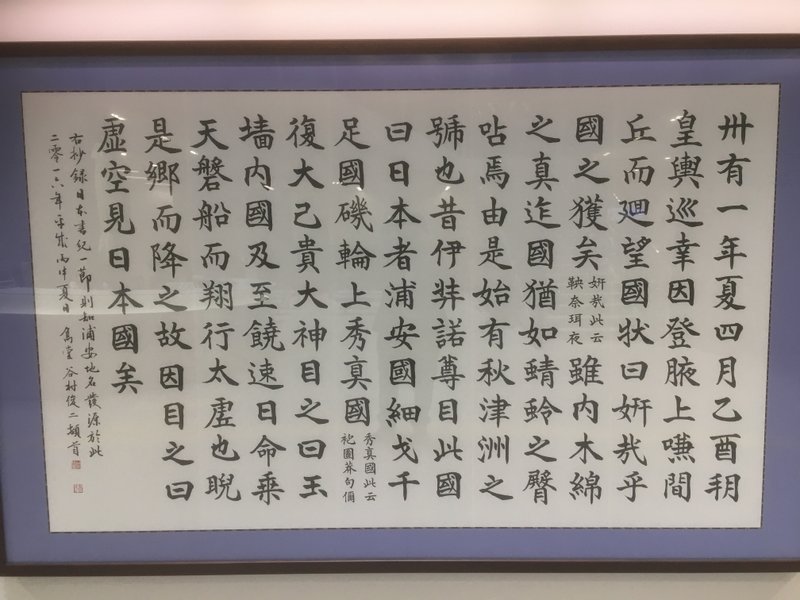 卅有一年夏四月乙酉朔
皇輿巡幸因登腋上嗛間
丘而廻望國状曰妍哉乎
國之獲矣妍哉此云鞅奈珥夜雖内木綿
之真迮國猶如蜻蛉之臀
呫焉由是始有秋津洲之
號也昔伊弉諾尊目此國
曰日本者浦安國細戈千
足國磯輪上秀真國秀真國此云袍圖莽句儞
復大己貴大神目之曰玉
墻内國及至饒速日命乗
天磐船而翔行太虚也睨
是郷而降之故因目之曰
虚空見日本國矣
右抄録日本書紀一節則知浦安地名發源於此
二零一六年平成丙申夏日 雋堂谷村俊二頓首